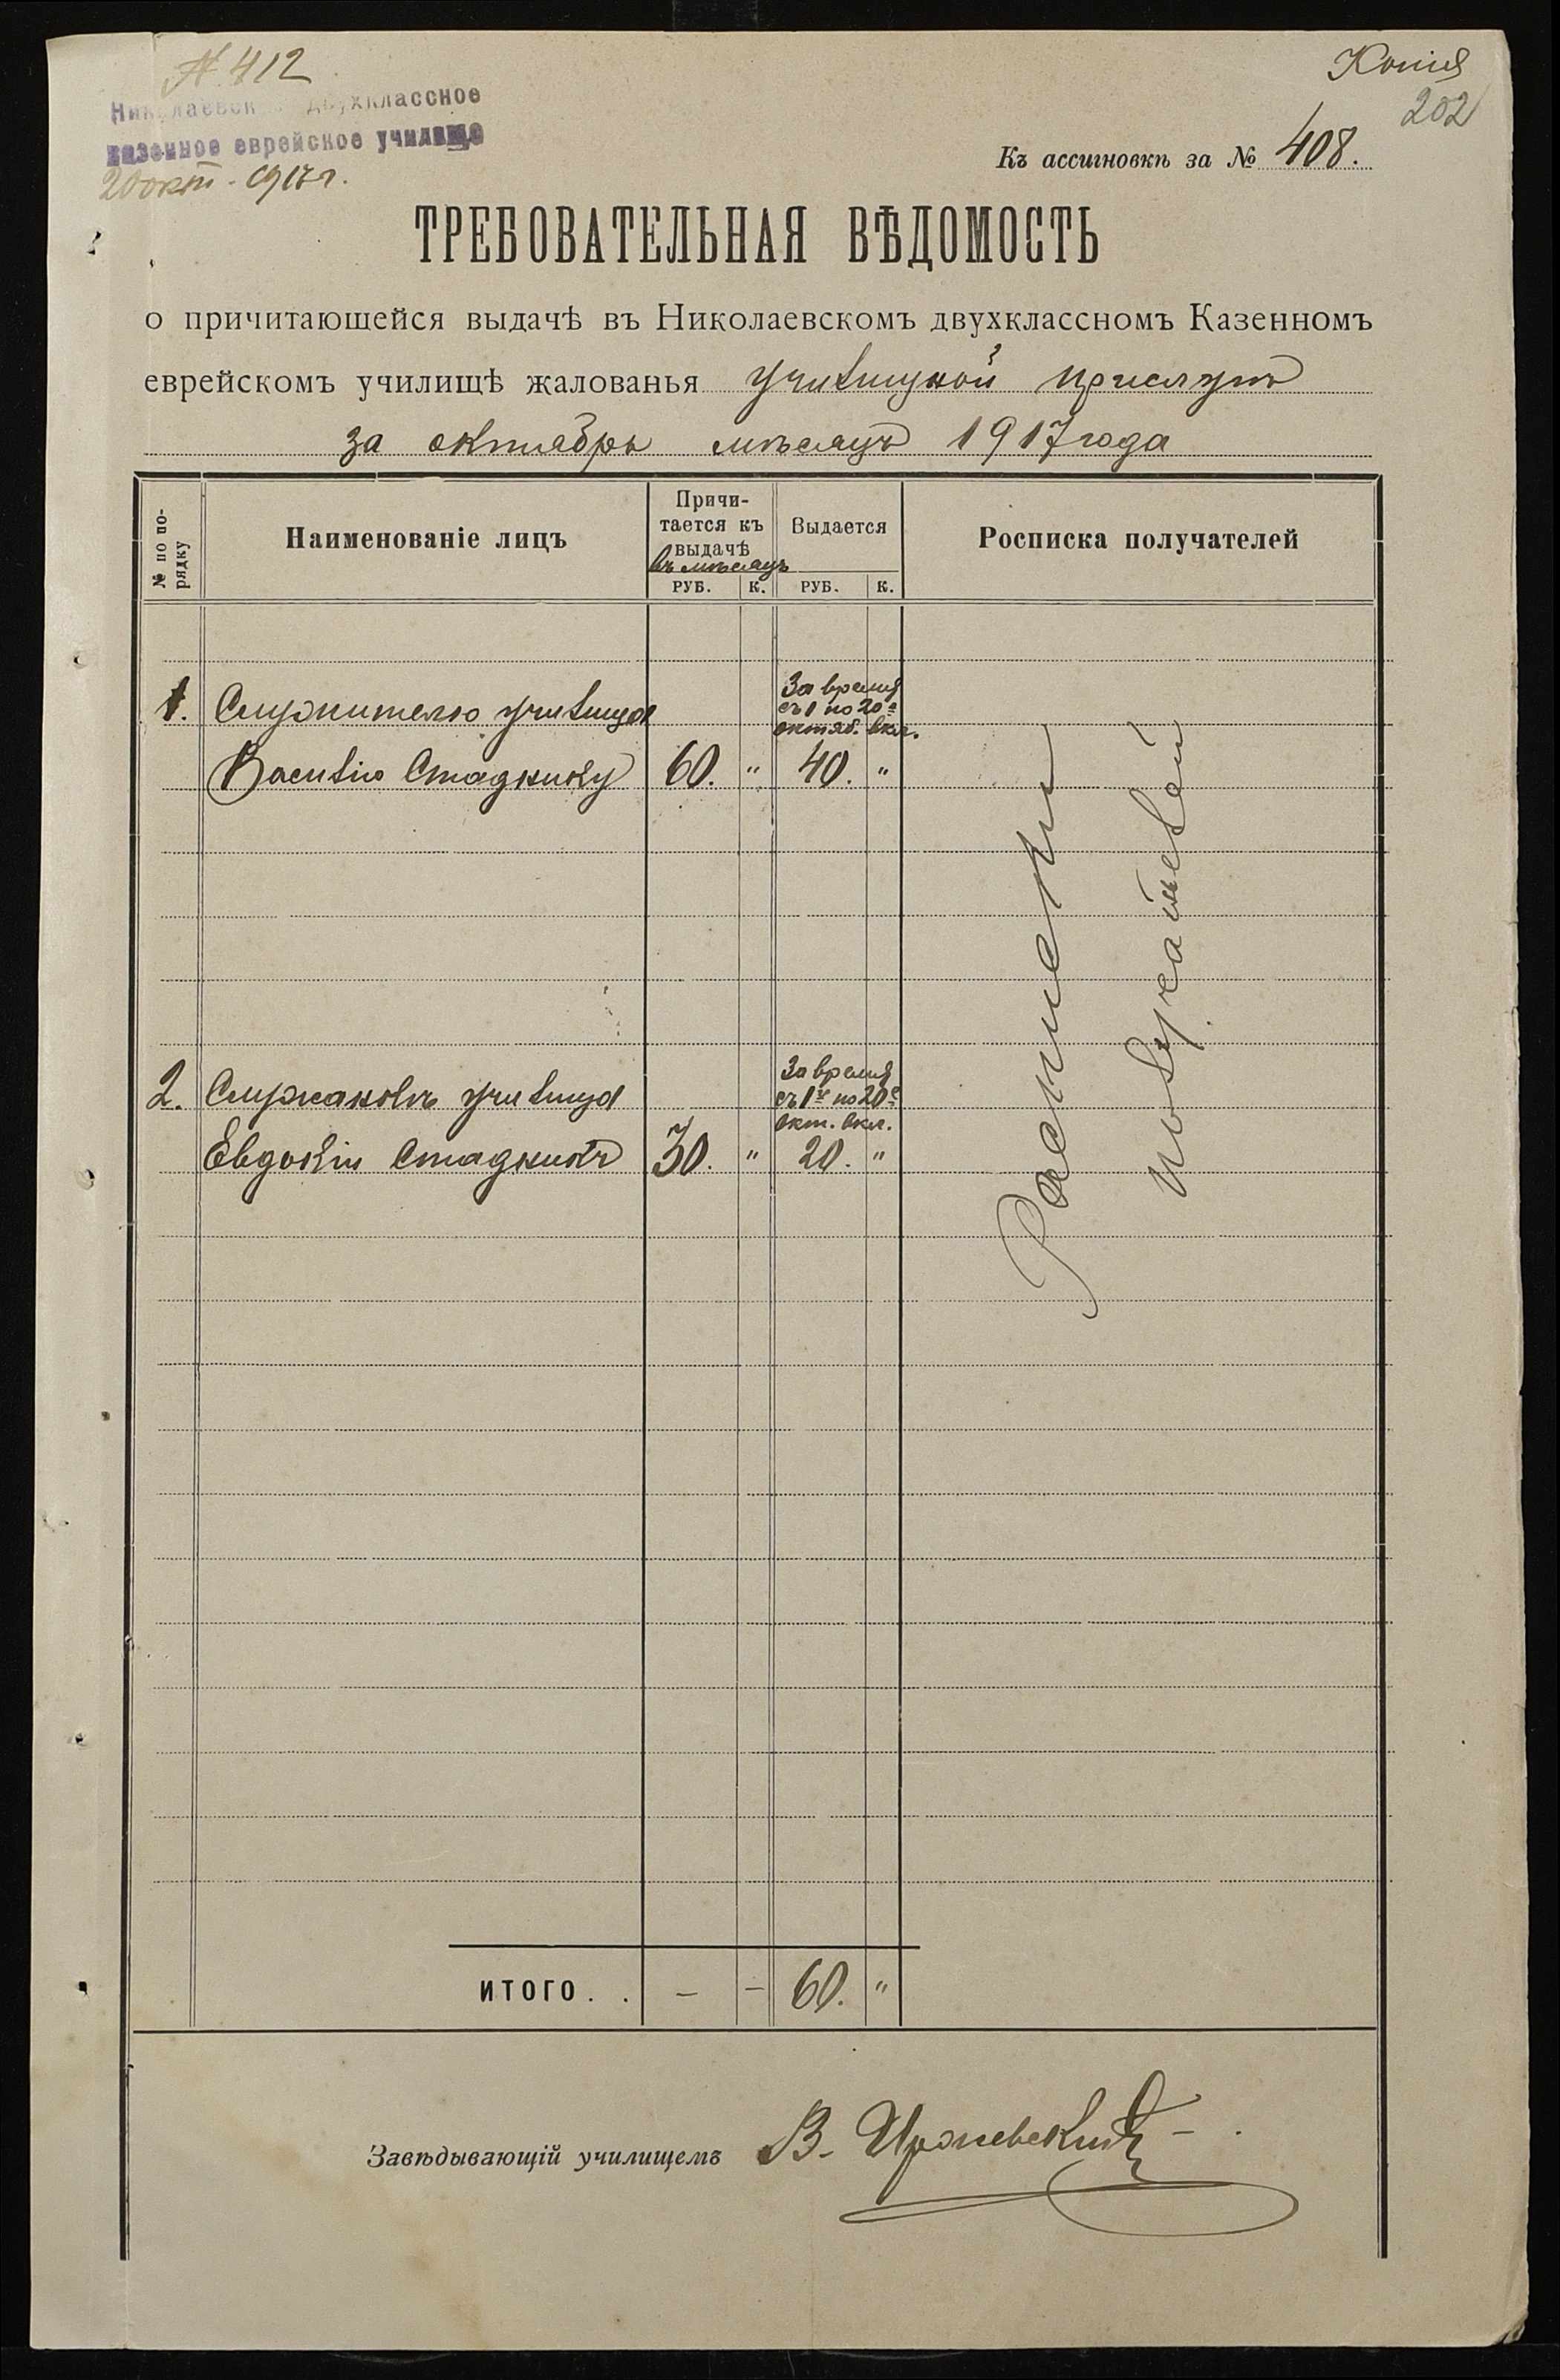 № 412
Николаевск двухклассное
казенное еврейское училище
20 окт. 1917 г.
Копія
202
Къ ассигновкѣ за № 408.
ТРЕБОВАТЕЛЬНАЯ ВѢДОМОСТЬ
о причитающейся выдачѣ въ Николаевскомъ двухклассномъ Казенномъ
еврейскомъ училищѣ жалованья училищной прислугѣ
за октябрь мѣсяцъ 1917 года
№ по по-
рядку
Наименованіе лицъ
Причи-
тается къ
выдачѣ
въ мѣсяцъ
Выдается
Росписка получателей
РУБ. К. РУБ. К.
За время
1. Служителю училища съ 1 по 20е
октяб. вкл.
Василію Стаднику 60. " 40. "
За время
2. Служанкѣ училища съ 1го по 20е
окт. вкл.
Евдокіи Стадникъ 30. " 20. "
Росписки
получателей
ИТОГО . . – – 60. "
Завѣдывающій училищемъ В.